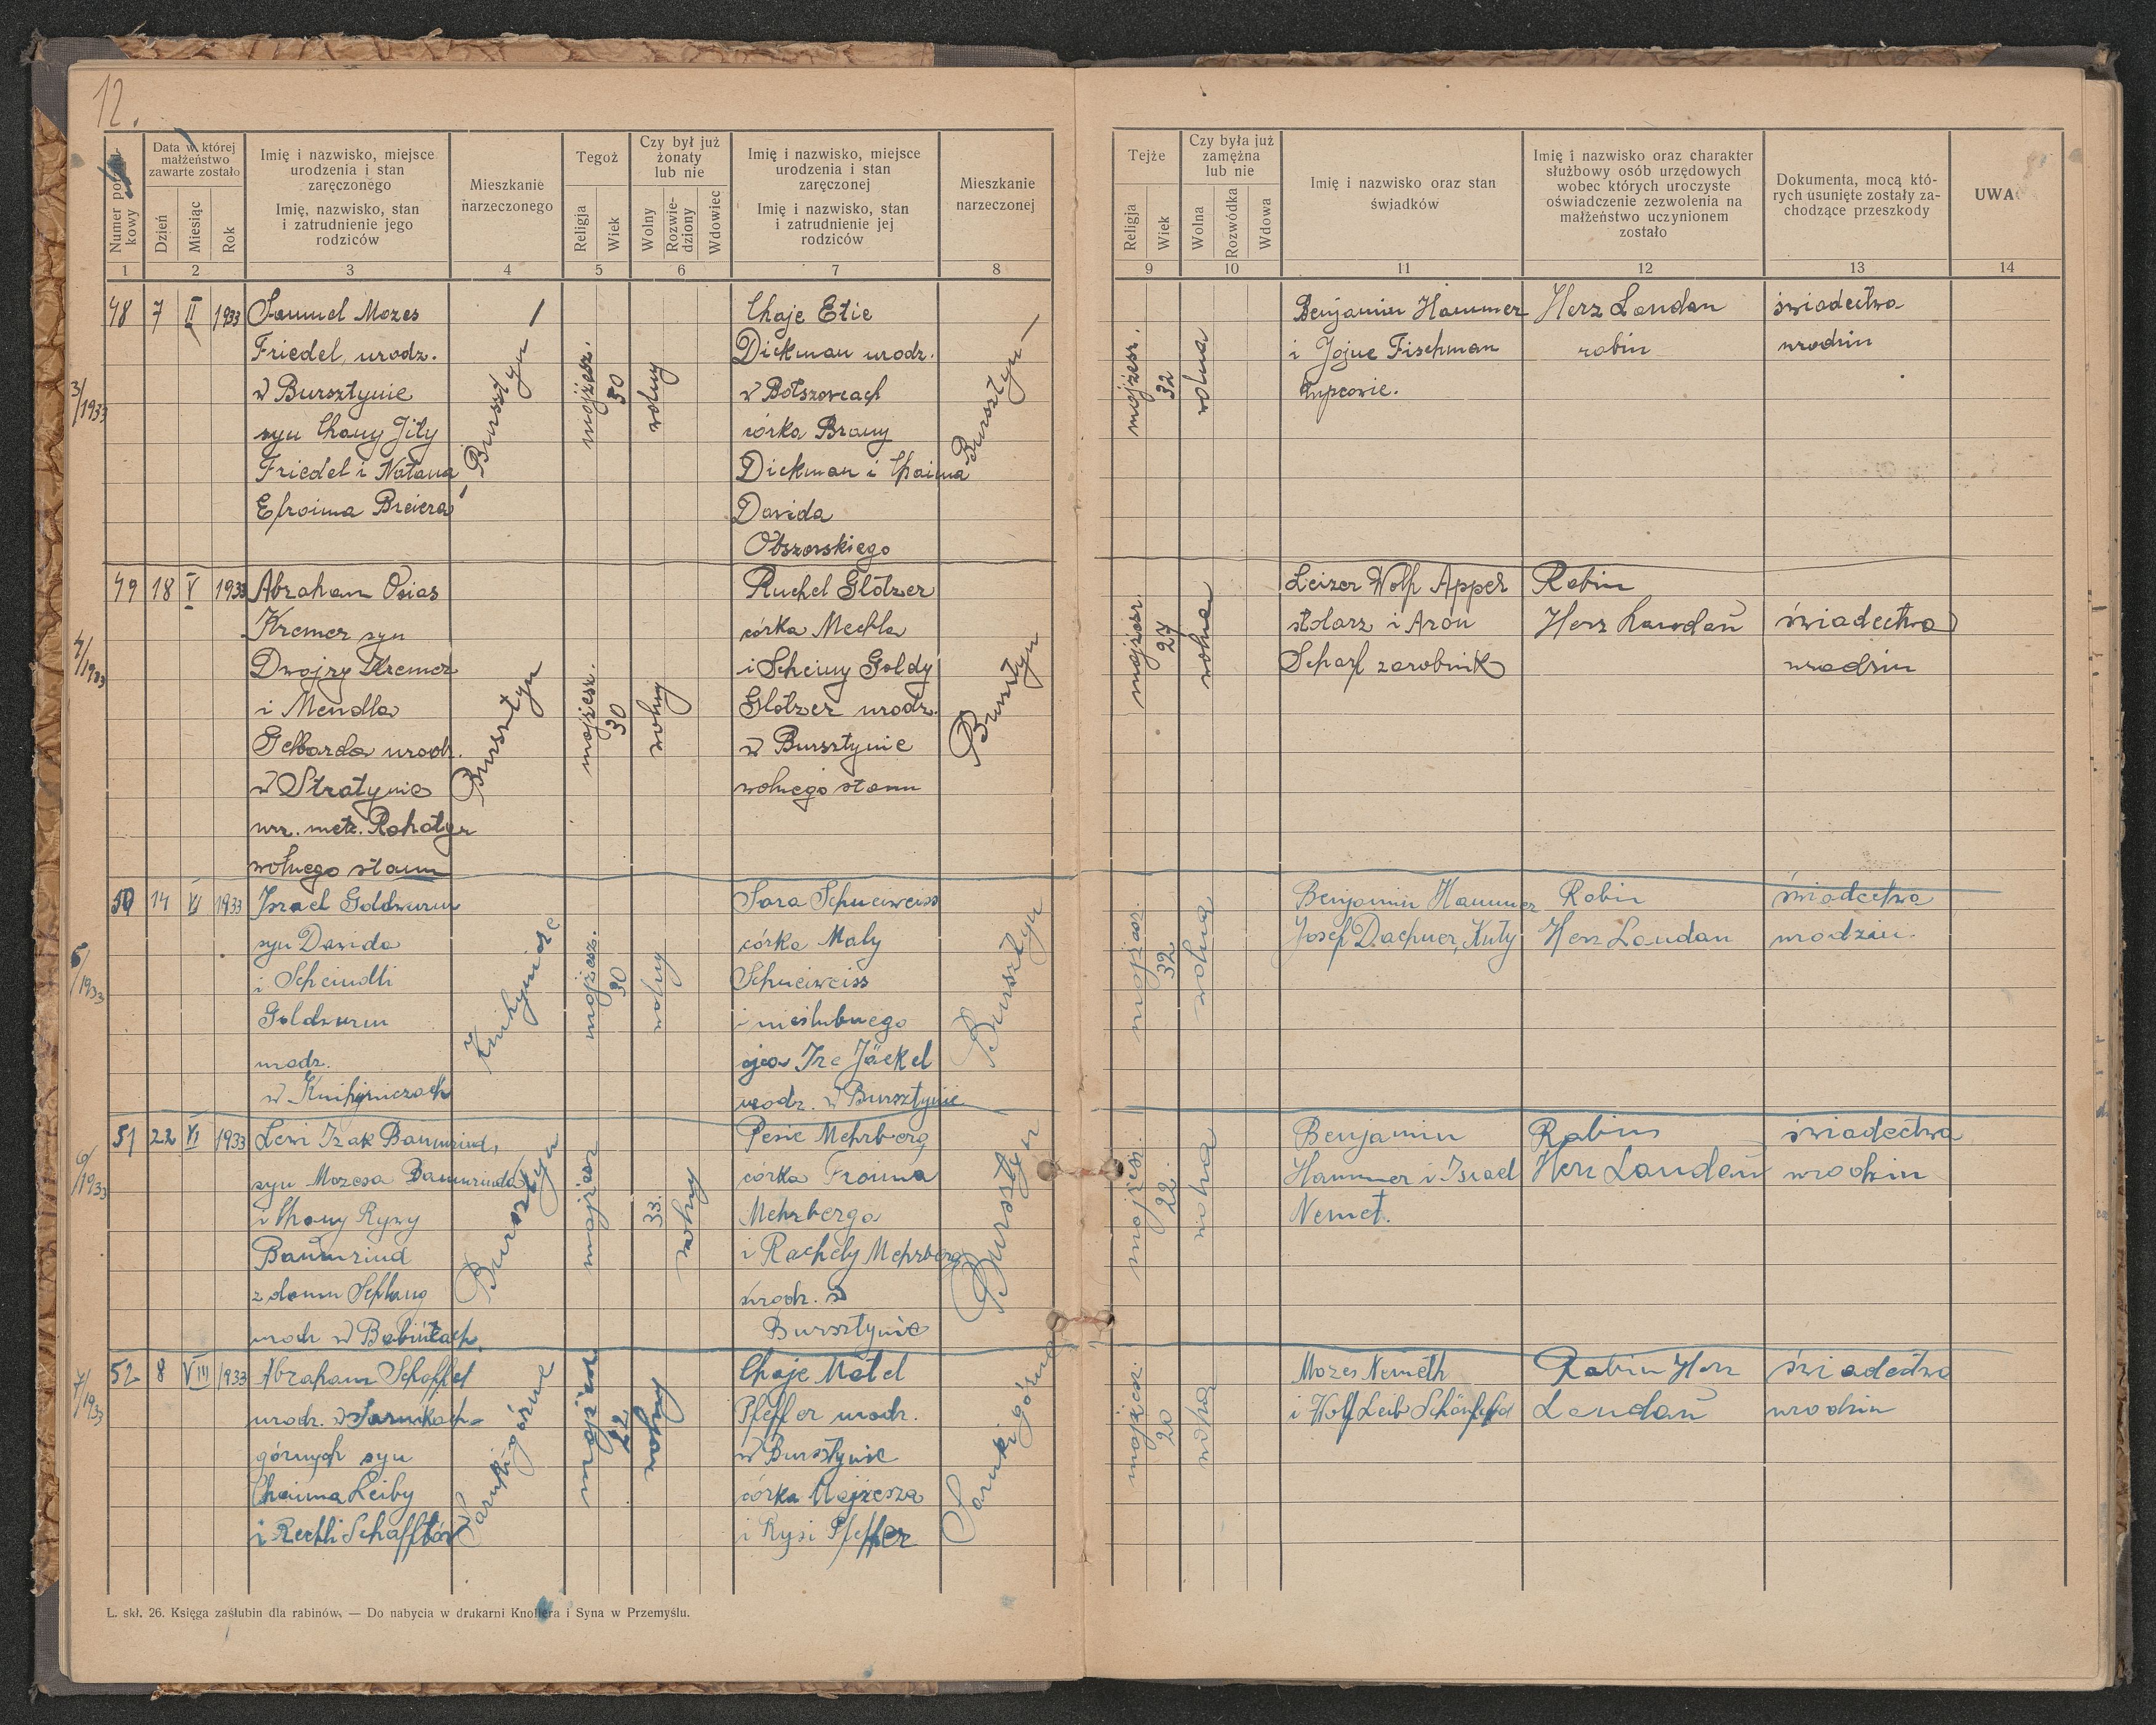 12.
Numer porządkowy
Data w której małżeństwo zawarte zostało
Dzień
Miesiąc
Rok
Imię i nazwisko, miejsce urodzenia i stan zaręczonego
Imię, nazwisko, stan i zatrudnienie jego rodziców
Mieszkanie narzeczonego
Tegoż
Religja
Wiek
Czy był już żonaty lub nie
Wolny
Rozwiedziony
Wdowiec
Imię i nazwisko, miejsce urodzenia i stan zaręczonej
Imię i nazwisko, stan i zatrudnienie jej rodziców
Mieszkanie narzeczonej
Tejże
Religja
Wiek
Czy była już zamężna lub nie
Wolna
Rozwódka
Wdowa
Imię i nazwisko oraz stan świadków
Imię i nazwisko oraz charakter służbowy osób urzędowych wobec których uroczyste oświadczenie zezwolenia na małżeństwo uczynionem zostało
Dokumenta, mocą których usunięte zostały zachodzące przeszkody
UWA
1 2 3 4 5 6 7 8 9 10 11 12 13 14
3/1933
48 7 II 1933
Samuel Mozes
Friedel, urodz.
w Bursztynie
syn Chany Jity
Friedel i Natana
Efroima Breiera
Bursztyn
mojżesz.
30
wolny
Chaje Etie
Dickman urodz.
w Bołszowcach
córka Brany
Dickman i Chaima
Dawida
Obszorskiego
Bursztyn
mojżesz.
32
wolna
Benjamin Hammer
i Jojne Fischman
kupcowie.
Herz Landau
rabin
świadectwa
urodzin
4/1933
49 18 V 1933
Abraham Osias
Kremer syn
Dwojry Kremer
i Mendla
Gelbarda urodz.
w Stratynie
urz. metr. Rohatyn
wolnego stanu
Bursztyn
mojżesz.
30
wolny
Ruchel Glotzer
córka Mechla
i Scheiny Goldy
Glotzer urodz.
w Bursztynie
wolnego stanu
Bursztyn
mojżesz.
27
wolna
Leizer Wolf Apper
stolarz i Aron
Scharf zarobnik
Rabin
Herz Landau
świadectwa
urodzin
5/1933
50 14 VI 1933
Israel Goldwurm
syn Dawida
i Scheindli
Goldwurm
urodz.
w Knihyniczach
Knihynicze
mojżesz.
30
wolny
Sara Schneiweiss
córka Maly
Schneiweiss
i nieślubnego
ojca Ire Jäckel
urodz. w Bursztynie
Bursztyn
mojżesz.
32
wolna
Benjamin Hammer
Josef Dachner, Kuty
Rabin
Herz Landau
świadectwa
urodzin.
6/1933
51 22 VI 1933
Lewi Izak Baumrind,
syn Mozesa Baumrinda
i Chany Rywy
Baumrind
z domu
urodz. w Babińcach.
Bursztyn
mojżesz
33.
wolny
Pesie Mehrberg
córka Froima
Mehrberga
i Rachely Mehrberg
urodz. w
Bursztynie
Bursztyn
mojżesz.
22.
wolna
Benjamin
Hammer i Israel
Nemet.
Rabin
Herz Landau
świadectwa
urodzin
7/1933
52 8 VIII 1933
Abraham Schaffel
urodz. w Sarnkach-
górnych syn
Chaima Leiby
i Rechli
Sarnki górne
mojżesz
22
wolny
Chaje Motel
Pfeffer urodz.
w Bursztynie
córka Mojżesza
i Rysi Pfeffer
Sarnki górne
mojżesz.
20
wolna
Mozes Nemeth
i Wolf Leib Schönfeld
Rabin Herz
Landau
świadectwa
urodzin
L. skł. 26. Księga zaślubin dla rabinów. — Do nabycia w drukarni Knollera i Syna w Przemyślu.